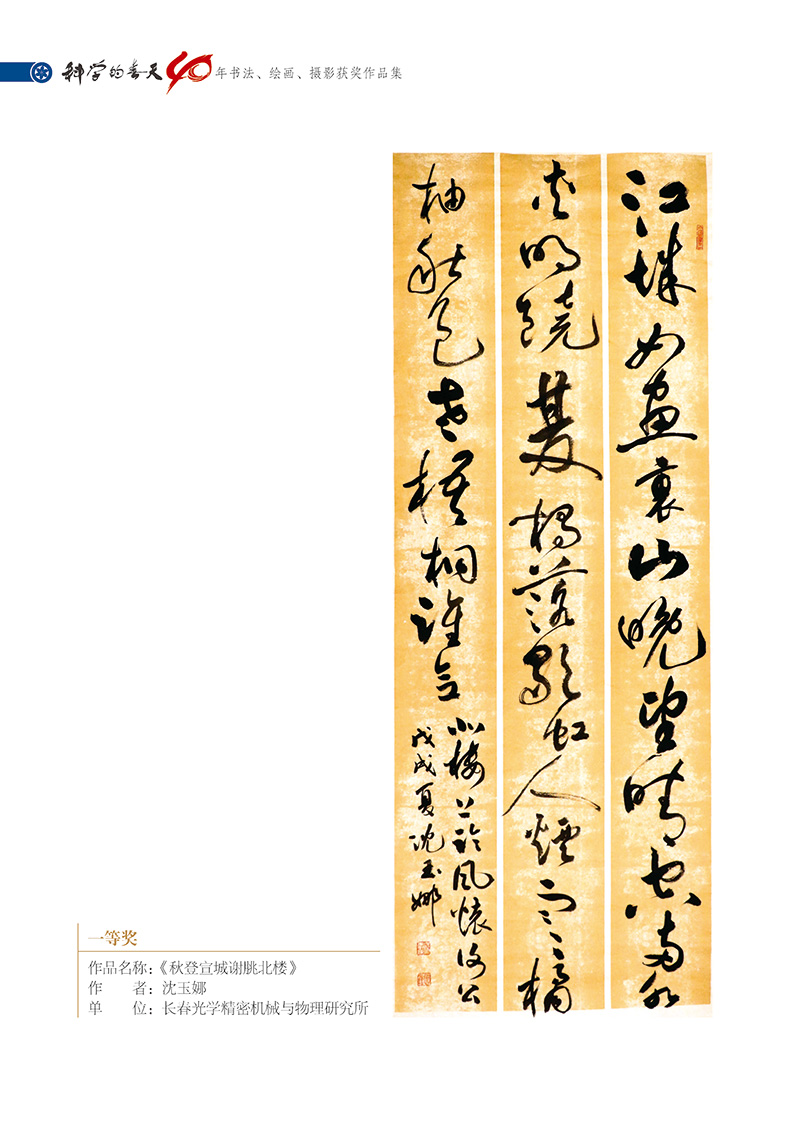 科学的春天40年书法、绘画、摄影获奖作品集
江城如畫裏山晚望晴空兩水
夾明鏡雙橋落彩虹人煙寒橘
柚秋色老梧桐誰念
北樓上臨風懷謝公
戊戌夏沈玉娜
一等奖
作品名称：《秋登宣城谢朓北楼》
作　　者：沈玉娜
单　　位：长春光学精密机械与物理研究所